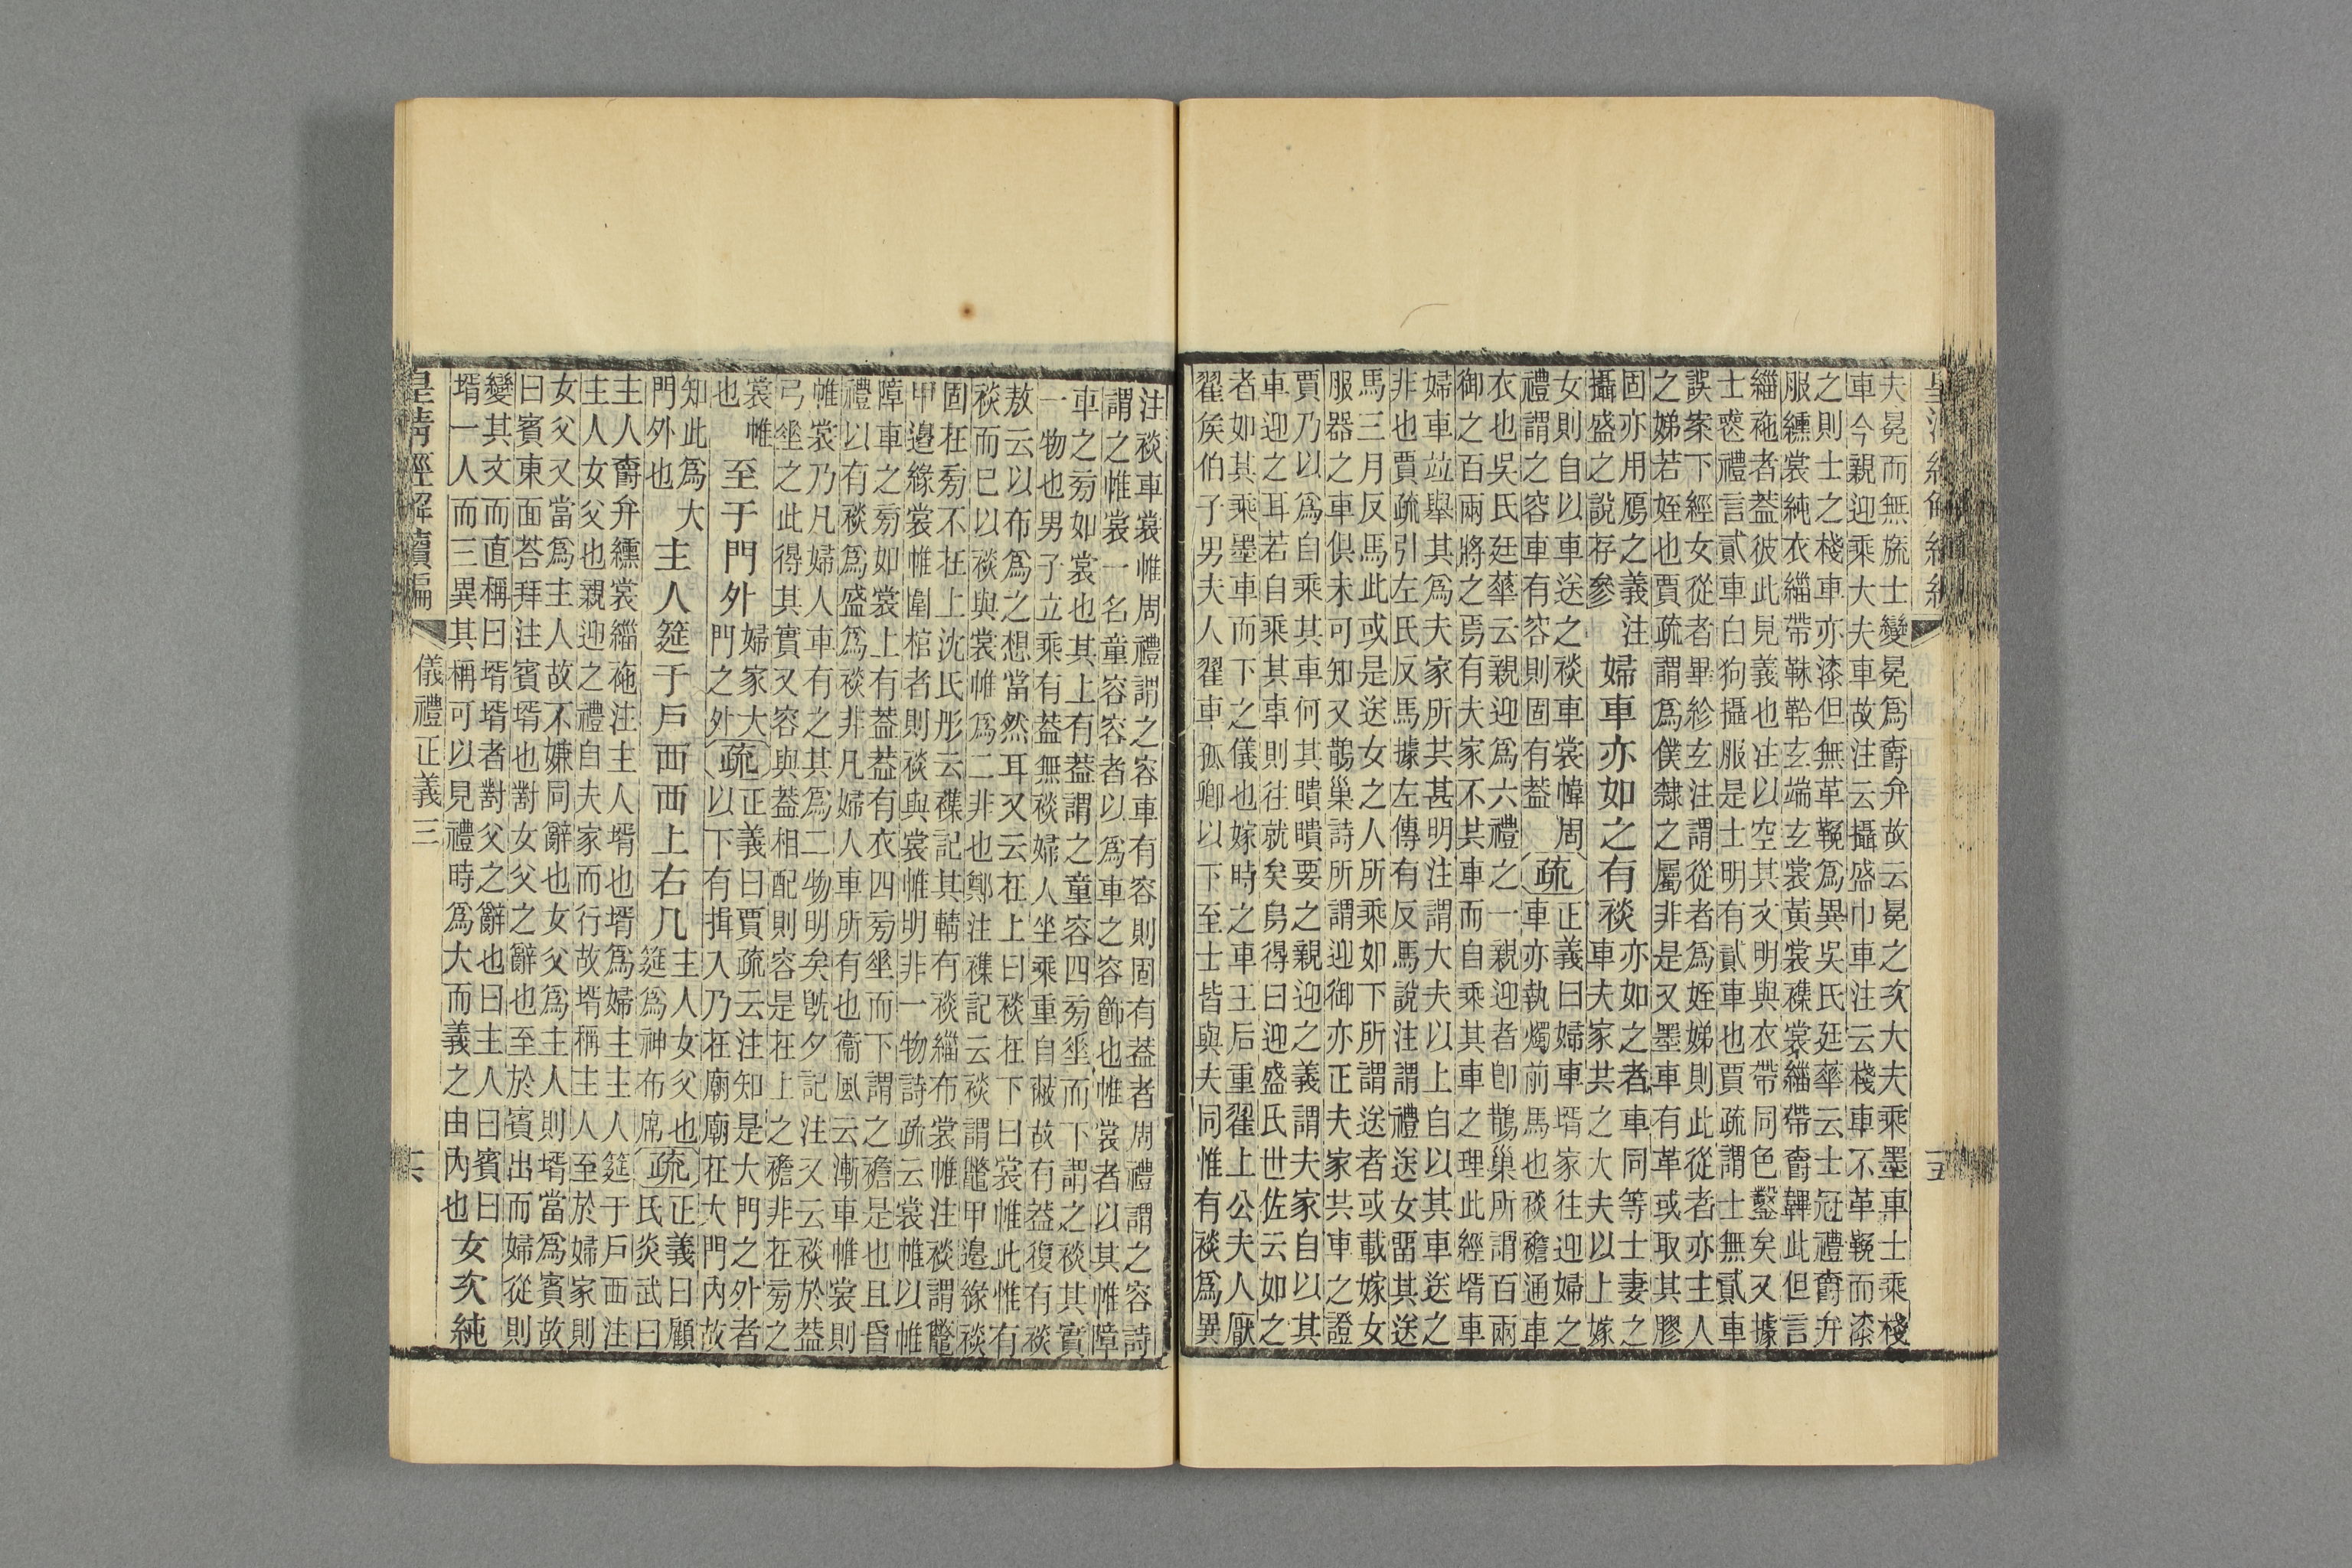 夫冕而無旒士變冕爲爵弁故云冕之次大夫乘墨車士乘棧
車今親迎乘大夫車故注云攝盛巾車注云棧車不革鞔而漆
之則士之棧車亦漆但無革鞔爲異吳氏廷華云士冠禮爵弁
服纁裳純衣緇帶韎韐玄端玄裳黃裳襍裳緇帶爵韠此但言
緇袘者葢彼此見義也注以空其文明與衣帶同色鑿矣又據
士喪禮言貳車白狗攝服是士明有貳車也賈疏謂士無貳車
誤案下經女從者畢袗玄注謂從者爲姪娣則此從者亦主人
之娣若姪也賈疏謂爲僕隸之屬非是又墨車有革或取其膠
固亦用鴈之義注
攝盛之說存參
婦車亦如之有裧
亦如之者車同等士妻之
車夫家共之大夫以上嫁
女則自以車送之裧車裳幃周
禮謂之容車有容則固有葢
疏
正義曰婦車壻家往迎婦之
車亦執燭前馬也裧襜通車
衣也吳氏廷華云親迎爲六禮之一親迎者卽鵲巢所謂百兩
御之百兩將之焉有夫家不其車而自乘其車之理此經壻車
婦車竝舉其爲夫家所共甚明注謂大夫以上自以其車送之
非也賈疏引左氏反馬據左傳有反馬說注謂禮送女留其送
馬三月反馬此或是送女之人所乘如下所謂送者或載嫁女
服器之車俱未可知又鵲巢詩所謂迎御亦正夫家共車之證
賈乃以爲自乘其車何其瞶瞶要之親迎之義謂夫家自以其
車迎之耳若自乘其車則往就矣舅得曰迎盛氏世佐云如之
者如其乘墨車而下之儀也嫁時之車王后重翟上公夫人厭
翟矦伯子男夫人翟車孤卿以下至士皆與夫同惟有裧爲異
十五
注裧車裳帷周禮謂之容車有容則固有葢者周禮謂之容詩
謂之帷裳一名童容容者以爲車之容飾也帷裳者以其帷障
車之旁如裳也其上有葢謂之童容四旁垂而下謂之裧其實
一物也男子立乘有葢無裧婦人坐乘重自蔽故有葢復有裧
敖云以布爲之想當然耳又云在上曰裧在下曰裳帷此惟有
裧而巳以裧與裳帷爲二非也鄭注襍記云裧謂鼈甲邊緣裧
固在旁不在上沈氏彤云襍記其輤有裧緇布裳帷注裧謂鼈
甲邊緣裳帷圍棺者則裧與裳帷明非一物詩疏云裳帷以帷
障車之旁如裳上有葢葢有衣四旁垂而下謂之襜是也且昏
禮以有裧爲盛爲裧非凡婦人車所有也衞風云漸車帷裳則
帷裳乃凡婦人車有之其爲二物明矣旣夕記注又云裧於葢
弓垂之此得其實又容與葢相配則容是在上之襜非在旁之
裳帷
也
至于門外
婦家大
門之外
疏
正義曰賈疏云注知是大門之外者
以下有揖入乃在廟廟在大門內故
知此爲大
門外也
主人筵于戶西西上右几
主人女父也
筵爲神布席
疏
正義曰顧
氏炎武曰
主人爵弁纁裳緇袘注主人壻也壻爲婦主主人筵于戶西注
主人女父也親迎之禮自夫家而行故壻稱主人至於婦家則
女父又當爲主人故不嫌同辭也女父爲主人則壻當爲賓故
曰賓東面荅拜注賓壻也對女父之辭也至於賓出而婦從則
變其文而直稱曰壻壻者對父之辭也曰主人曰賓曰
壻一人而三異其稱可以見禮時爲大而義之由內也
女次純
皇清經解續編
儀禮正義三